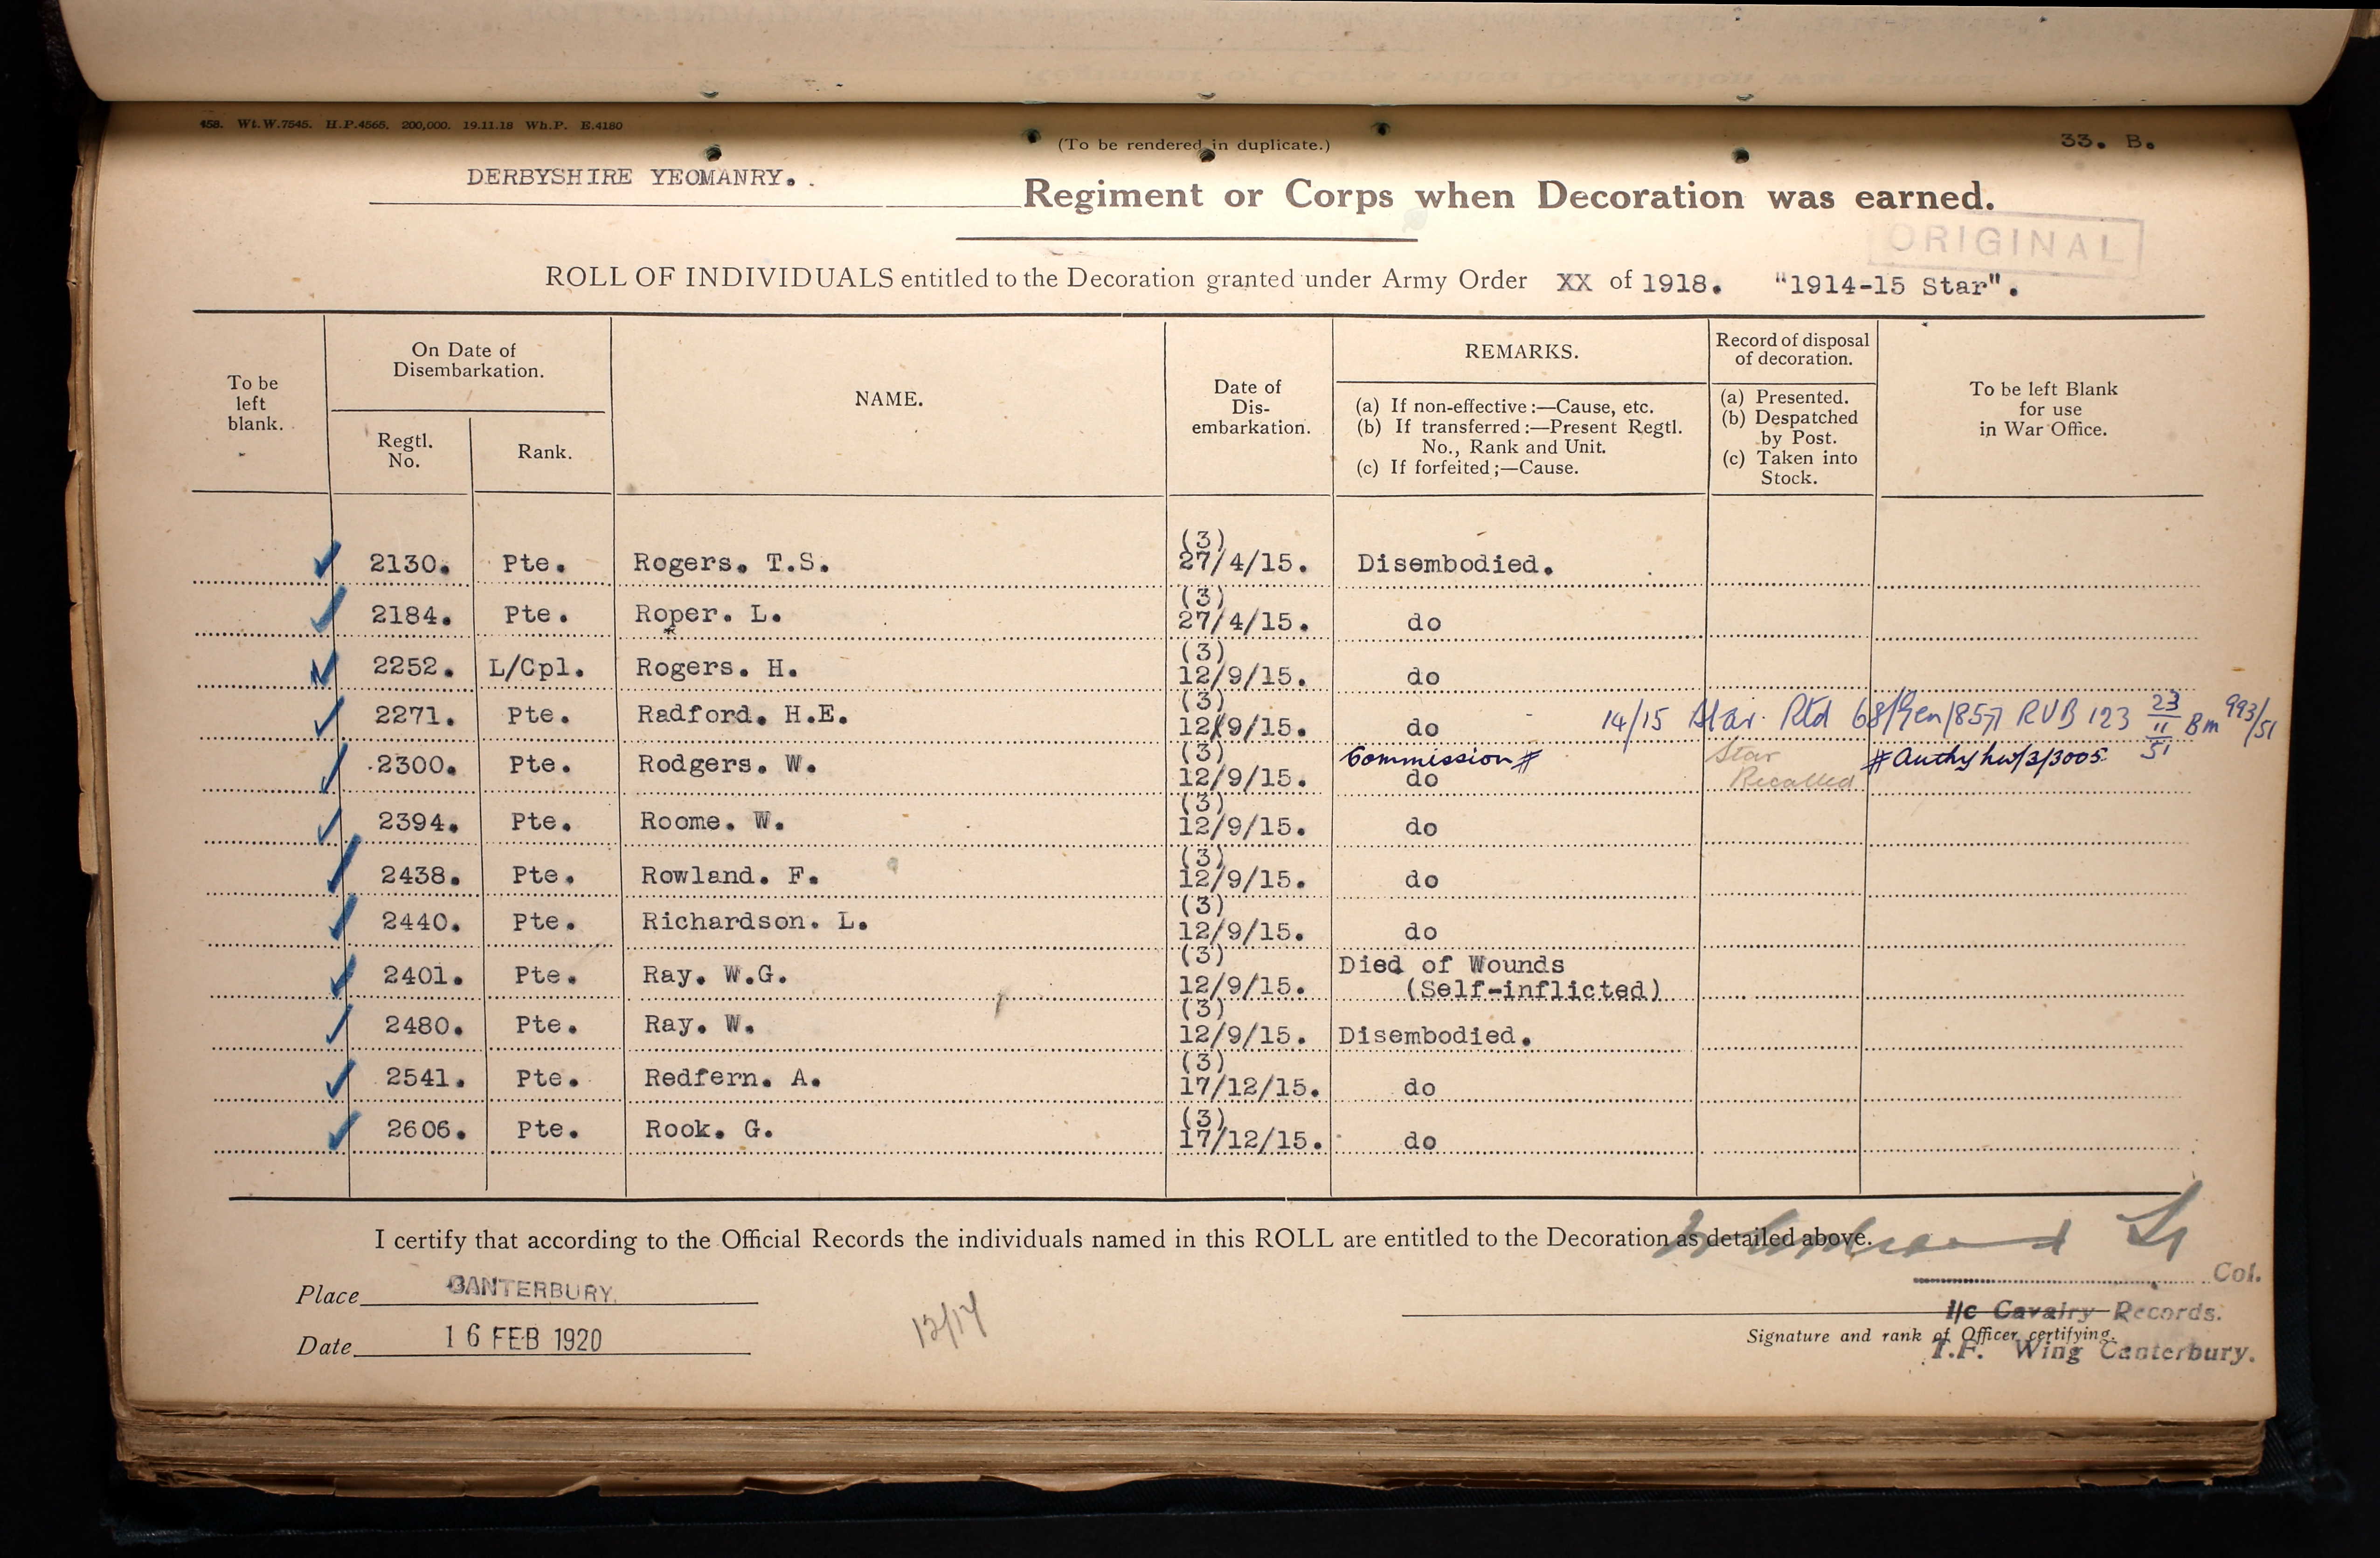 458. Wt.W.7545. H.P.4565. 200,000. 19.11.18 Wh.P. E.4180
(To be rendered in duplicate.)
33. B.
DERBYSHIRE YEOMANRY. Regiment or Corps when Decoration was earned.
ORIGINAL
ROLL OF INDIVIDUALS entitled to the Decoration granted under Army Order XX of 1918. "1914-15 Star".
To be left blank.
On Date of Disembarkation.
Regtl. No.
Rank.
NAME.
Date of Dis-embarkation.
REMARKS.
(a) If non-effective:—Cause, etc.
(b) If transferred:—Present Regtl. No., Rank and Unit.
(c) If forfeited;—Cause.
Record of disposal of decoration.
(a) Presented.
(b) Despatched by Post.
(c) Taken into Stock.
To be left Blank for use in War Office.
2130. Pte. Rogers. T.S. (3) 27/4/15. Disembodied.
2184. Pte. Roper. L. (3) 27/4/15. do
2252. L/Cpl. Rogers. H. (3) 12/9/15. do
2271. Pte. Radford. H.E. (3) 12/9/15. do 14/15 Star. Rtd 68/Gen/8571 RVB 123 23/11/51 Bm 993/51
2300. Pte. Rodgers. W. (3) 12/9/15. Commission # do Star Recalled # Authy hw/3/3005
2394. Pte. Roome. W. (3) 12/9/15. do
2438. Pte. Rowland. F. (3) 12/9/15. do
2440. Pte. Richardson. L. (3) 12/9/15. do
2401. Pte. Ray. W.G. (3) 12/9/15. Died of Wounds (Self-inflicted)
2480. Pte. Ray. W. (3) 12/9/15. Disembodied.
2541. Pte. Redfern. A. (3) 17/12/15. do
2606. Pte. Rook. G. (3) 17/12/15. do
I certify that according to the Official Records the individuals named in this ROLL are entitled to the Decoration as detailed above.
Col.
Place CANTERBURY.
I/c Cavalry Records.
Date 16 FEB 1920
12/14
Signature and rank of Officer certifying.
T.F. Wing Canterbury.